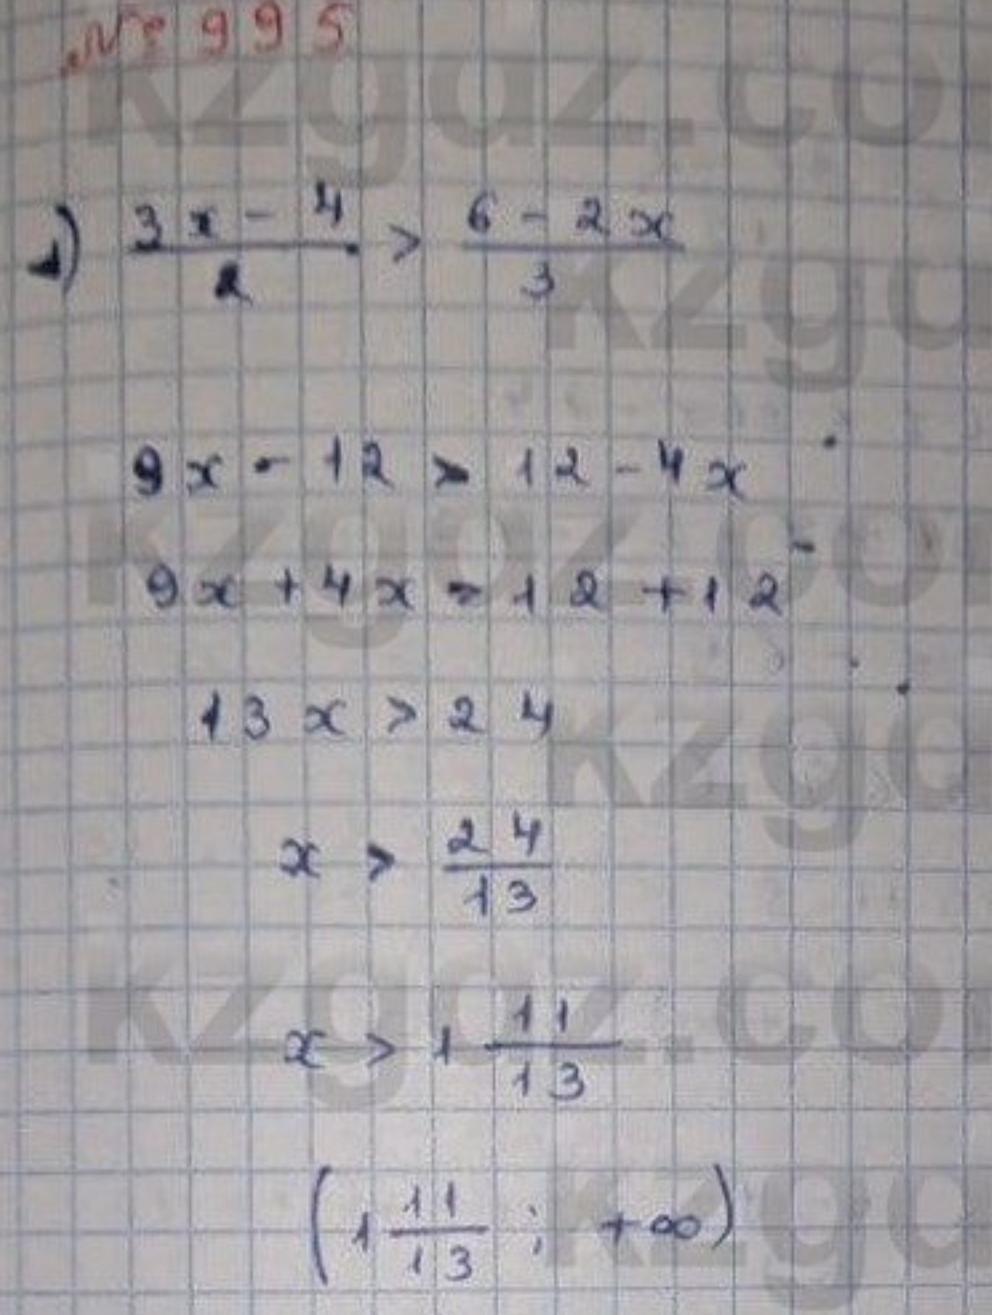 № 995
1) (3x - 4)/2 > (6 - 2x)/3
9x - 12 > 12 - 4x
9x + 4x > 12 + 12
13x > 24
x > 24/13
x > 1 11/13
(1 11/13 ; +∞)
kzgdz.com